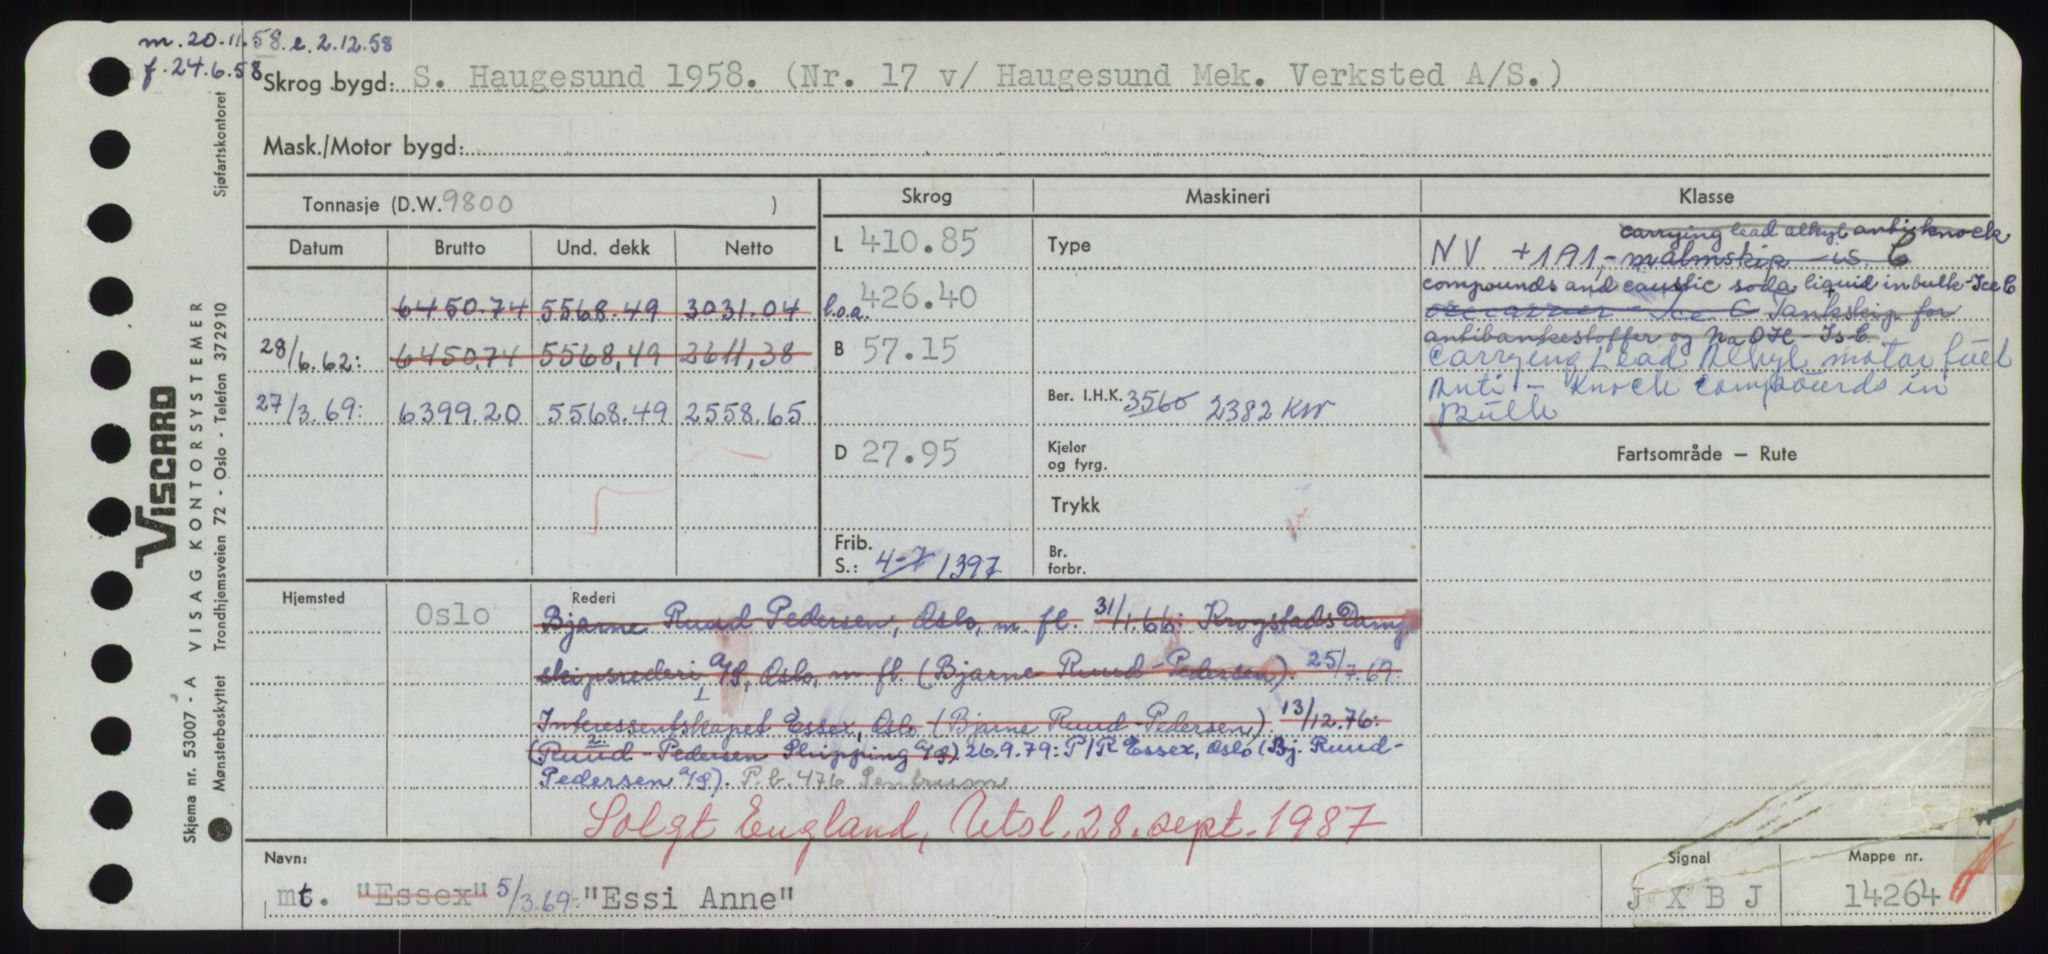 m. 20.11.58. e. 2.12.58
f. 24.6.58
Skrog bygd: S. Haugesund 1958. (Nr. 17 v/ Haugesund Mek. Verksted A/S.)
Mask./Motor bygd:
Tonnasje (D.W. 9800 )
Skrog
Maskineri
Klasse
Datum Brutto Und. dekk Netto
6450.74 5568.49 3031.04
28/6.62: 6450,74 5568,49 2611,38
27/3.69: 6399.20 5568.49 2558.65
L 410.85
l.o.a. 426.40
B 57.15
D 27.95
Frib.
S.: 4-7 1397
Type
Ber. I.H.K. 3560 2382 KW
Kjeler
og fyrg.
Trykk
Br.
forbr.
carrying lead alkyl anti-knock
NV +1A1,- malmskip - is C
compounds and caustic soda liquid in bulk - Ice C
ore carrier Ice C Tankskip for
antibankestoffer og NaOH - Is C.
Carrying Lead Alkyl motor fuel
Anti - Knock Compounds in
Bulk
Fartsområde – Rute
Hjemsted
Oslo
Rederi
Bjarne Ruud-Pedersen, Oslo, m. fl. 31/1.66: Krogstads Damp
skipsrederi A/S, Oslo, m fl. (Bjarne Ruud-Pedersen). 25/7.69:
1
Interessentskapet Essex, Oslo (Bjarne Ruud-Pedersen) 13/12.76:
2.
(Ruud-Pedersen Shipping A/S). 26.9.79: P/R Essex, Oslo (Bj. Ruud-
Pedersen A/S). P.b. 476 Sentrum
Solgt England, Utsl. 28. sept. 1987
Navn:
mt. "Essex" 5/3.69: "Essi Anne"
Signal
J X B J
Mappe nr.
14264
Skjema nr. 53007 - A VISAG KONTORSYSTEMER
VISCARD
Mønsterbeskyttet Trondhjemsveien 72 - Oslo - Telefon 372910
Sjøfartskontoret